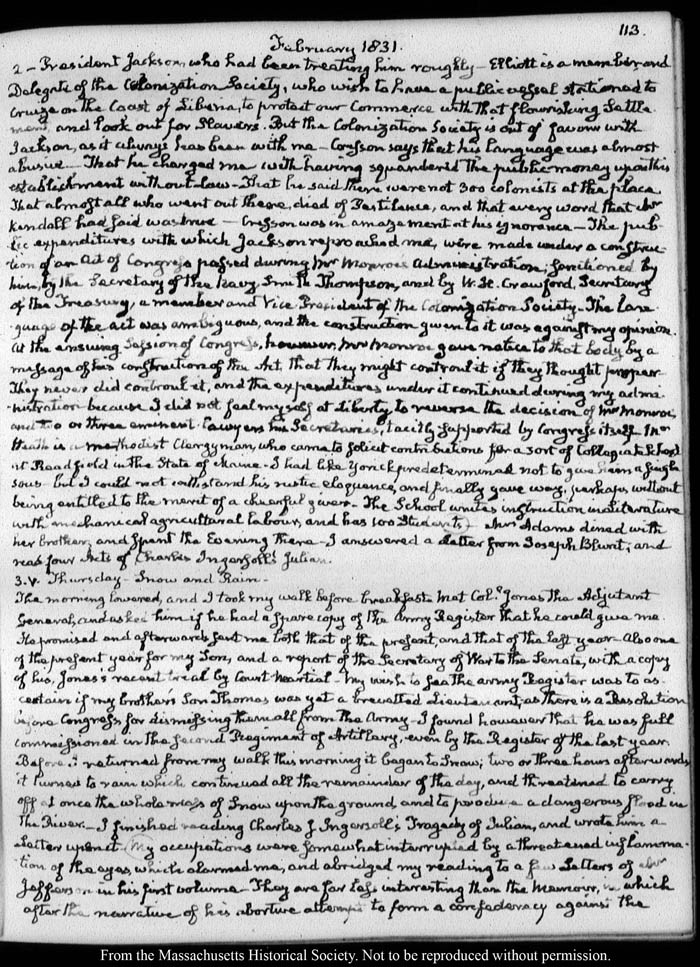 113.
February 1831.
2 — President Jackson, who had been treating him roughly — Elliott is a member and
Delegate of the Colonization Society, who wish to have a public vessel stationed to
cruize on the Coast of Liberia, to protect our Commerce with that flourishing Settle-
ment, and look out for Slavers. But the Colonization Society is out of favour with
Jackson, as it always has been with me — Cresson says that his language was almost
abusive — That he charged me with having squandered the public money upon this
establishment without law — That he said there were not 300 colonists at the place
That almost all who went out there, died of Pestilence, and that every word that Mr
Kendall had said was true — Cresson was in amazement at his ignorance — The pub-
lic expenditures with which Jackson reproached me, were made under a construc-
tion of an Act of Congress passed during Mr Monroe's Administration, sanctioned by
him, by the Secretary of the Navy, Smith Thompson, and by W. H. Crawford, Secretary
of the Treasury, a member and Vice President of the Colonization Society — The lan-
guage of the act was ambiguous, and the construction given to it was against my opinion.
At the ensuing Session of Congress, however, Mr Monroe gave notice to that body by a
message of his construction of the Act, that they might controul it if they thought proper.
They never did controul it, and the expenditures under it continued during my admi-
nistration because I did not feel myself at liberty to reverse the decision of Mr Monroe,
and two or three eminent Lawyers his Secretaries, tacitly supported by Congress itself. Mr
Heath is a methodist Clergyman, who came to solicit contributions for a sort of Collegiate School
at Readfield in the State of Maine — I had like Yorick predetermined not to give him a single
sous — but I could not withstand his rustic eloquence, and finally gave way, perhaps without
being entitled to the merit of a cheerful giver — The School unites instruction in literature
with mechanical agricultural labour, and has 100 Students. Mrs Adams dined with
her brother, and spent the Evening there — I answered a Letter from Joseph Blunt, and
read four Acts of Charles Ingersoll's Julian.
3. V. Thursday — Snow and Rain —
The morning lowered, and I took my walk before breakfast. Met Coll. Jones the Adjutant
General, and asked him if he had a spare copy of the Army Register that he could give me.
He promised and afterwards sent me both that of the present, and that of the last year — Also one
of the present year for my Son, and a report of the Secretary of War to the Senate, with a copy
of his, Jones's recent trial by Court Martial — My wish to see the army Register was to as-
certain if my brother's Son Thomas was yet a brevetted Lieutenant, as there is a Resolution
before Congress for dismissing them all from the Army — I found however that he was full
commissioned in the second Regiment of Artillery, even by the Register of the last year.
Before I returned from my walk this morning it began to Snow; two or three hours afterwards,
it turned to rain which continued all the remainder of the day, and threatened to carry
off at once the whole mass of Snow upon the ground, and to produce a dangerous flood in
the River — I finished reading Charles J. Ingersoll's Tragedy of Julian, and wrote him a
Letter upon it. My occupations were somewhat interrupted by a threatened inflamma-
tion of the eyes which alarmed me, and abridged my reading to a few Letters of Mr
Jefferson in his first volume — They are far less interesting than the Memoir, in which
after the narrative of his abortive attempt to form a confederacy against the
From the Massachusetts Historical Society. Not to be reproduced without permission.